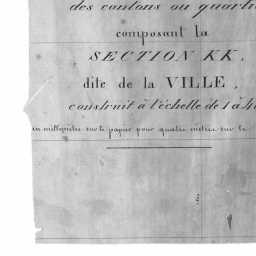 des cantons ou quarti
composant la
SECTION KK,
dite de la VILLE,
construit à l'échelle de 1 à 4
un millimètre sur le papier pour quatre mètres sur le